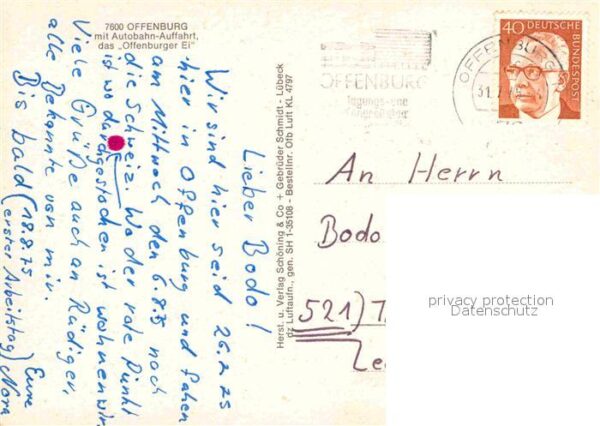 7600 OFFENBURG
mit Autobahn-Auffahrt,
das „Offenburger Ei"
Lieber Bodo!
Wir sind hier seid 26.7.75
hier in Offenburg und fahen
am Mittwoch den 6.8.75 noch
die Schweiz. Wo der rote Punkt
ist wo durchgestochen ist wohnen wir
Viele Grüße auch an Rüdiger,
alle Bekannte von mir.
Bis bald (18.8.75 Eure
erster Arbeitstag) Nora
Herst. u. Verlag Schöning & Co + Gebrüder Schmidt - Lübeck
dz Luftaufn., gen. SH 1-35108 - Bestellnr. Ofb Luft KL 4797
OFFENBURG
OFFENBURG
31.7.75
40 DEUTSCHE
BUNDESPOST
An Herrn
Bodo
521) T
privacy protection
Datenschutz